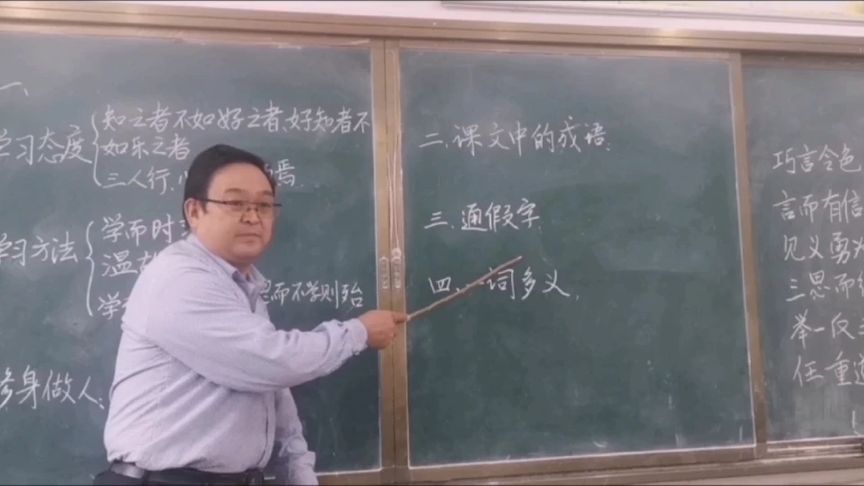 一、
学习态度
知之者不如好之者,好知者不
如乐之者
三人行,
焉.
学习方法
学而时
温
学
而不学则殆
修身做人:
二、课文中的成语:
三、通假字.
四、一词多义.
巧言令色
言而有信
见义勇
三思而
举一反
任重道